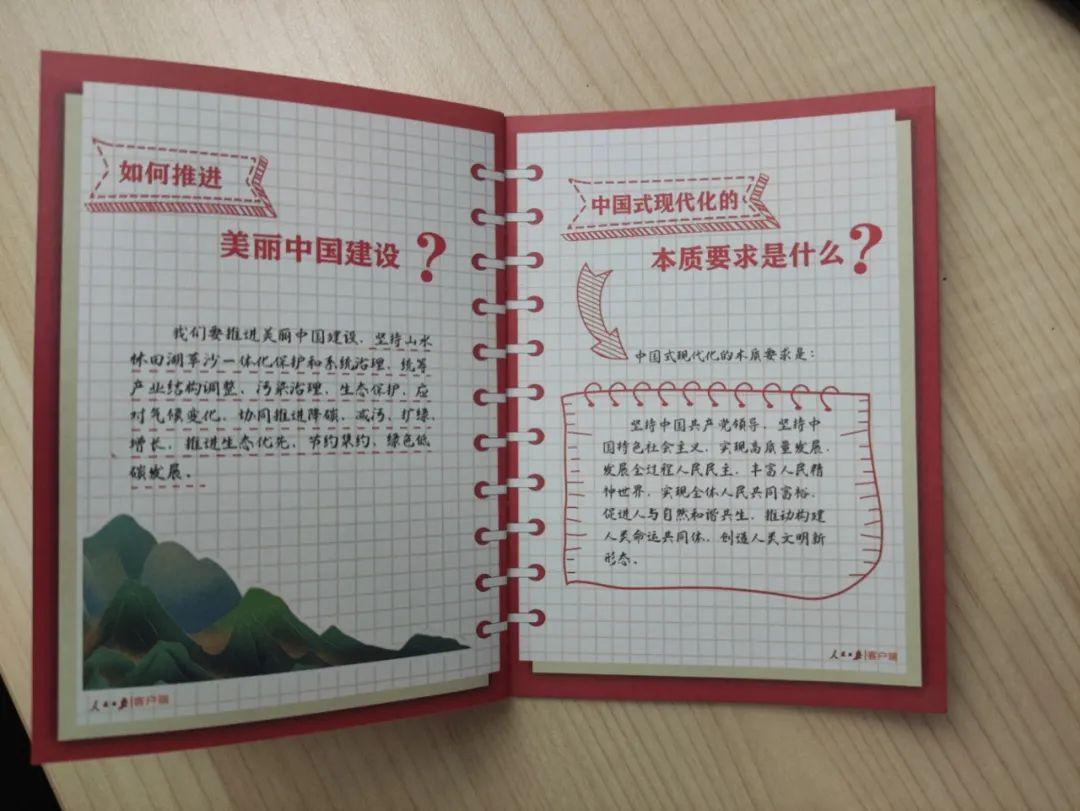 如何推进
美丽中国建设？
我们要推进美丽中国建设，坚持山水
林田湖草沙一体化保护和系统治理，统筹
产业结构调整、污染治理、生态保护、应
对气候变化，协同推进降碳、减污、扩绿、
增长，推进生态优先、节约集约、绿色低
碳发展。
人民日报|客户端
中国式现代化的
本质要求是什么？
中国式现代化的本质要求是：
坚持中国共产党领导，坚持中
国特色社会主义，实现高质量发展，
发展全过程人民民主，丰富人民精
神世界，实现全体人民共同富裕，
促进人与自然和谐共生，推动构建
人类命运共同体，创造人类文明新
形态。
人民日报|客户端